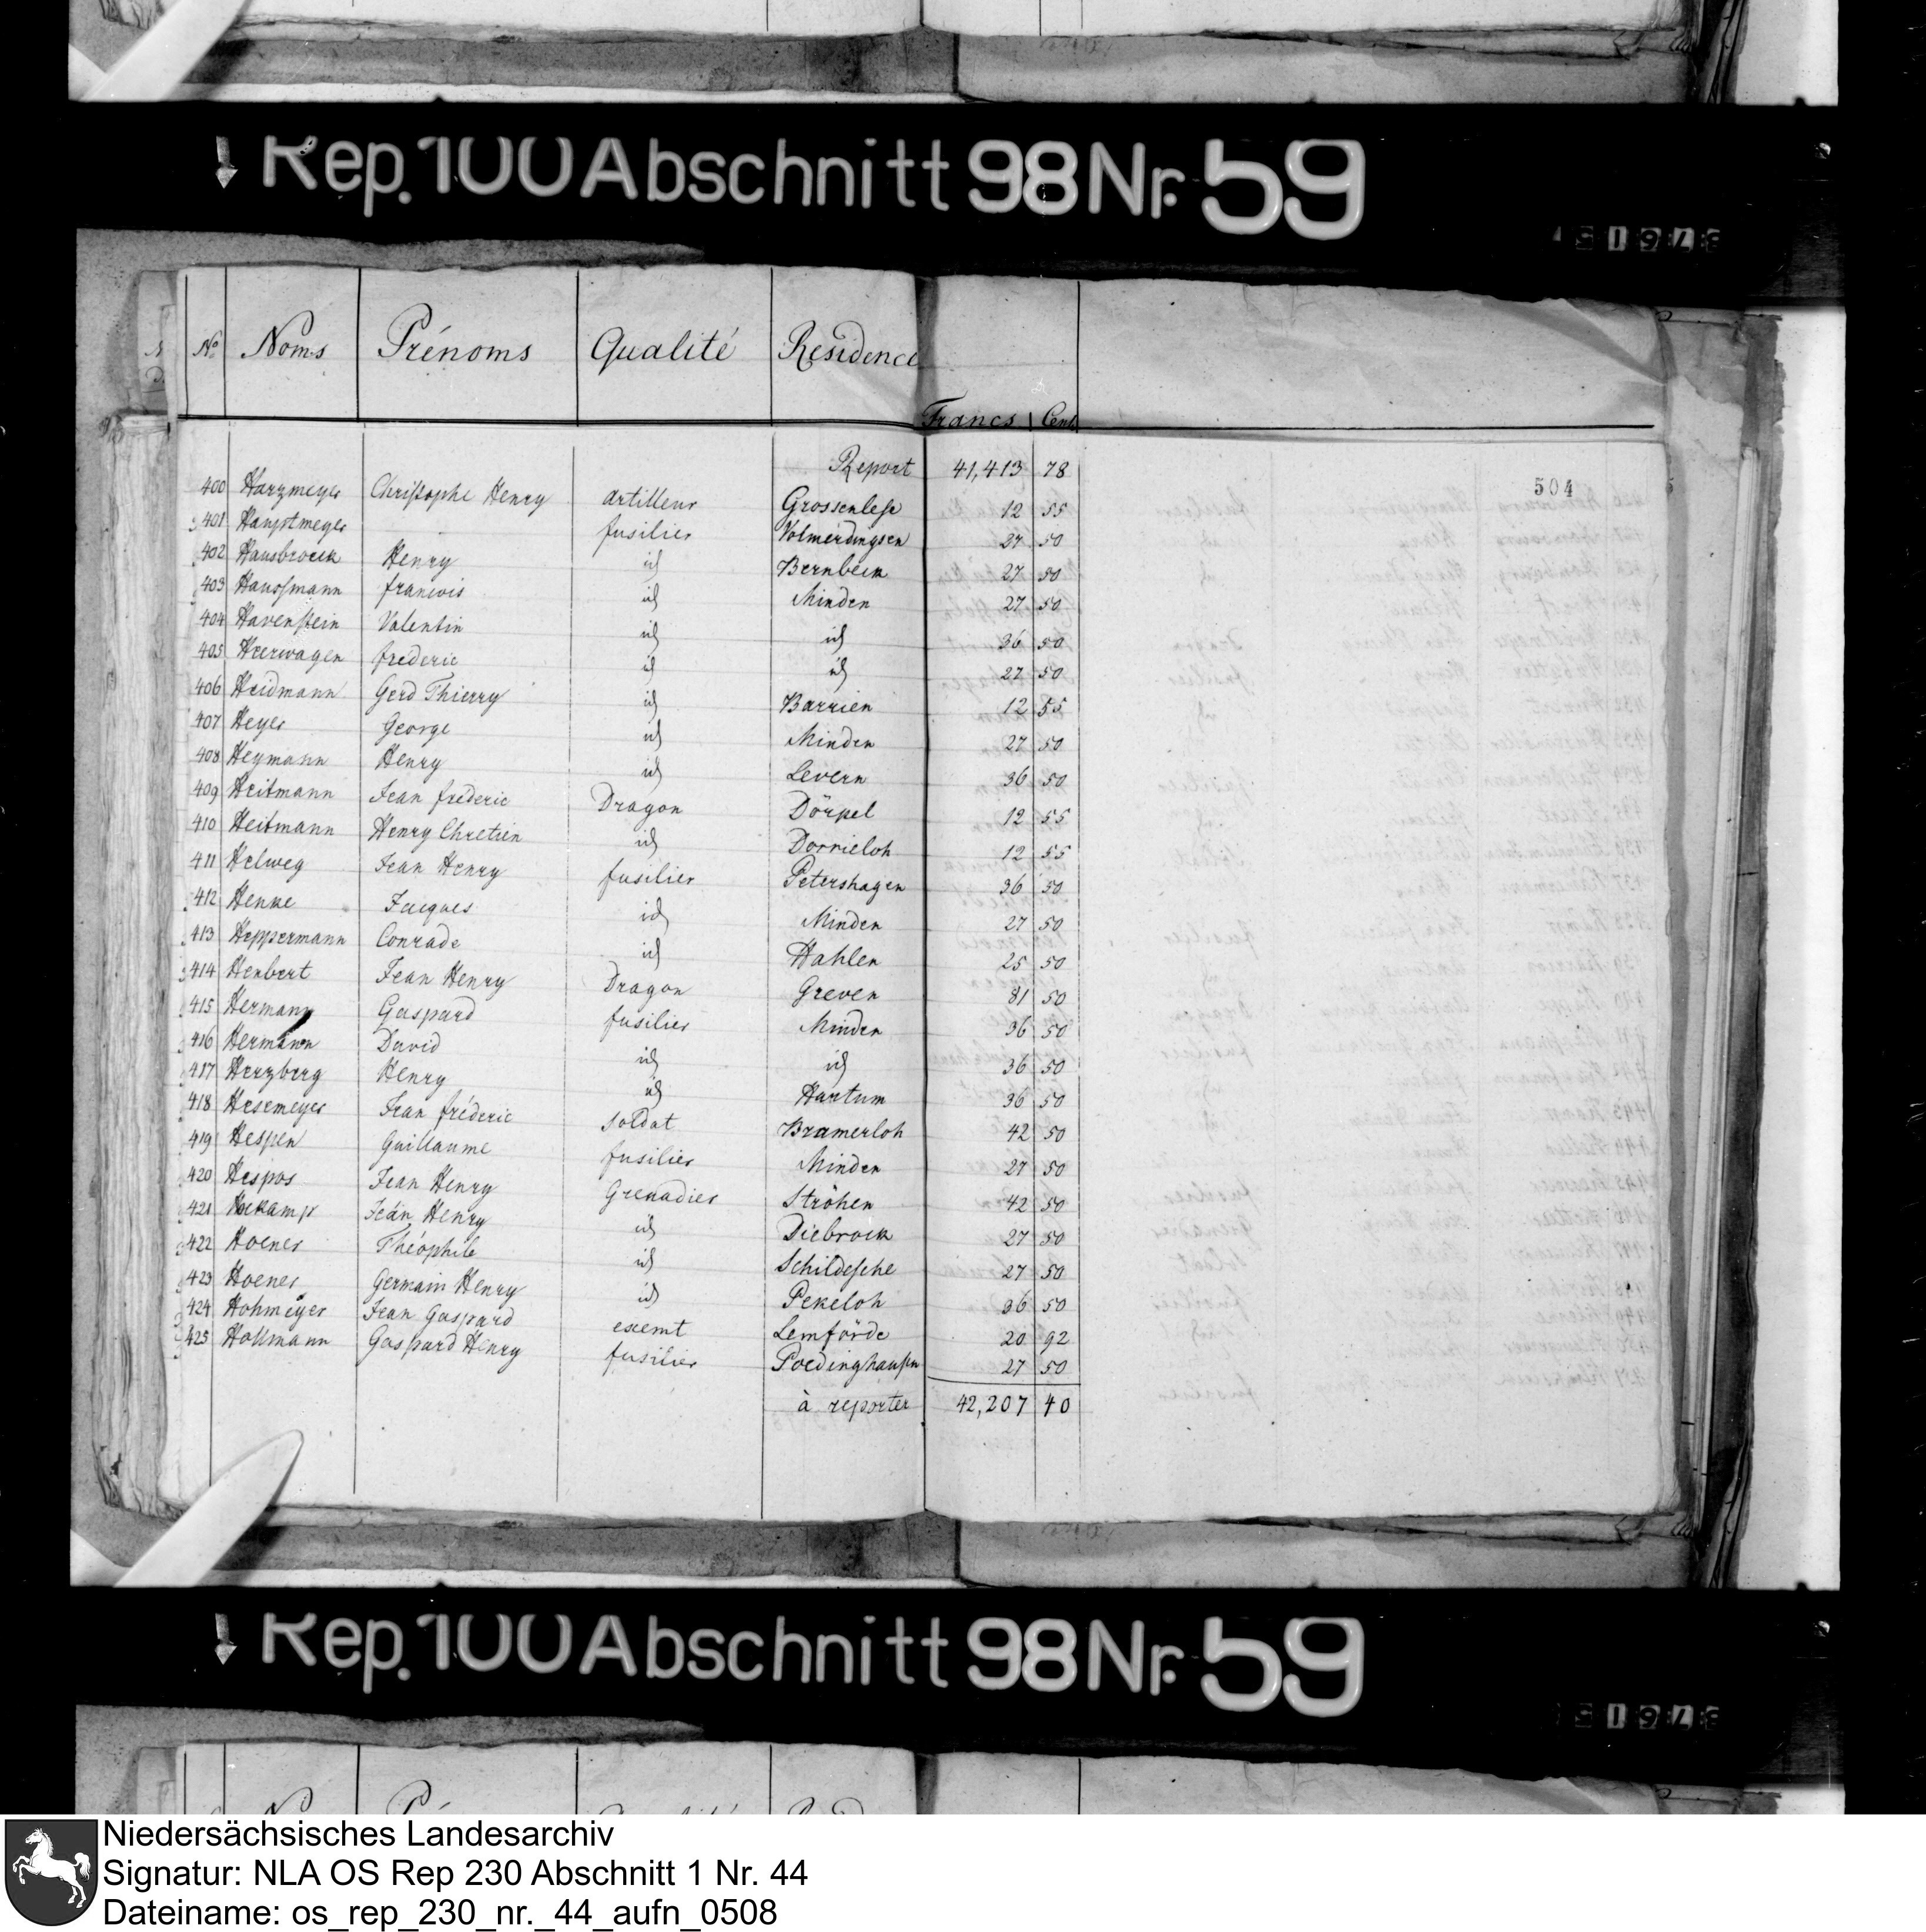 Rep. 100 Abschnitt 98 Nr. 59
No Noms Prénoms Qualité Residence
Francs Cent
Report 41,413 78
504
400 Harzmeyer Christophe Henry Artilleur Grossenlese 12 55
401 Hauptmeyer fusilier Volmerdingsen 27 50
402 Hausbrock Henry id Bernbeck 27 50
403 Haussmann francois id Minden 27 50
404 Havenstein Valentin id id 36 50
405 Heerwagen frederic id id 27 50
406 Heidmann Gerd Thierry id Barrien 12 55
407 Heyer George id Minden 27 50
408 Heymann Henry id Levern 36 50
409 Heitmann Jean frederic Dragon Dörpel 12 55
410 Heitmann Henry Chretien id Dornieloh 12 55
411 Helweg Jean Henry fusilier Petershagen 36 50
412 Henke Jacques id Minden 27 50
413 Heppermann Conrade id Hahlen 25 50
414 Herbert Jean Henry Dragon Greven 81 50
415 Hermann Gaspard fusilier Minden 36 50
416 Hermann David id id 36 50
417 Herzberg Henry id Hartum 36 50
418 Hesemeyer Jean fréderic soldat Bramerloh 42 50
419 Hespen Guillaume fusilier Minden 27 50
420 Hespos Jean Henry Grenadier Ströhen 42 50
421 Hoekamp Jean Henry id Diebrock 27 50
422 Hoener Théophile id Schildesche 27 50
423 Hoener Germain Henry id Pekeloh 36 50
424 Hohmeyer Jean Gaspard exemt Lemförde 20 92
425 Hollmann Gaspard Henry fusilier Poedinghausen 27 50
à reporter 42,207 40
Rep. 100 Abschnitt 98 Nr. 59
Niedersächsisches Landesarchiv
Signatur: NLA OS Rep 230 Abschnitt 1 Nr. 44
Dateiname: os_rep_230_nr._44_aufn_0508